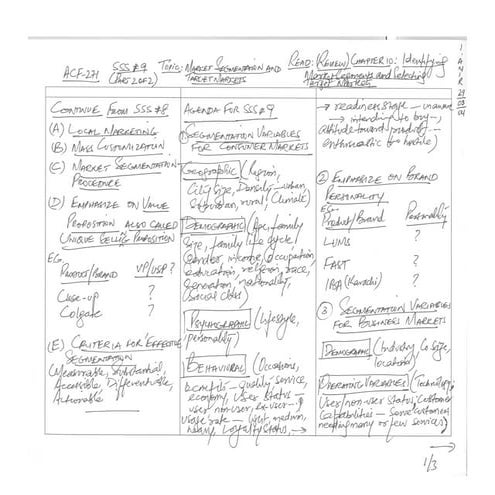 ACF-271
SSS # 9
(Part 2 of 2)
Topic: Market Segmentation and
Target Markets
Read: (Review) Chapter 10: Identifying
Market Segments and Selecting
Target Markets
Continue From SSS # 8
(A) Local Marketing
(B) Mass Customization
(C) Market Segmentation
Procedure
(D) Emphasize on Value
Proposition also called
Unique Selling Proposition
Eg.
Product/Brand VP/USP?
Close-up ?
Colgate ?
(E) Criteria for Effective
Segmentation
Measurable, Substantial,
Accessible, Differentiable,
Actionable
Agenda for SSS # 9
① Segmentation Variables
for Consumer Markets
Geographic (Region,
City size, Density – urban,
Suburban, rural, Climate)
Demographic (Age, family
size, family life cycle,
Gender, income, occupation,
education, religion, race,
Generation, nationality,
Social class)
Psychographic (Lifestyle,
personality)
Behavioral (Occasions,
benefits – Quality, Service,
economy, User status –
user, non user, ex-user –
usage rate – light, medium,
heavy, Loyalty status, →
→ readiness stage – unaware
→ intending to buy –
attitude toward product –
enthusiastic (to hostile)
② Emphasize on Brand
Personality
Eg.
Product/Brand Personality
LUMS ?
FAST ?
IBA (Karachi) ?
③ Segmentation Variables
for Business Markets
Demographic (Industry, Co. size,
location)
Operating Variables (Technology,
User/non-user status, Customer
Capabilities – some customers
needing many or few services)
→
1/3